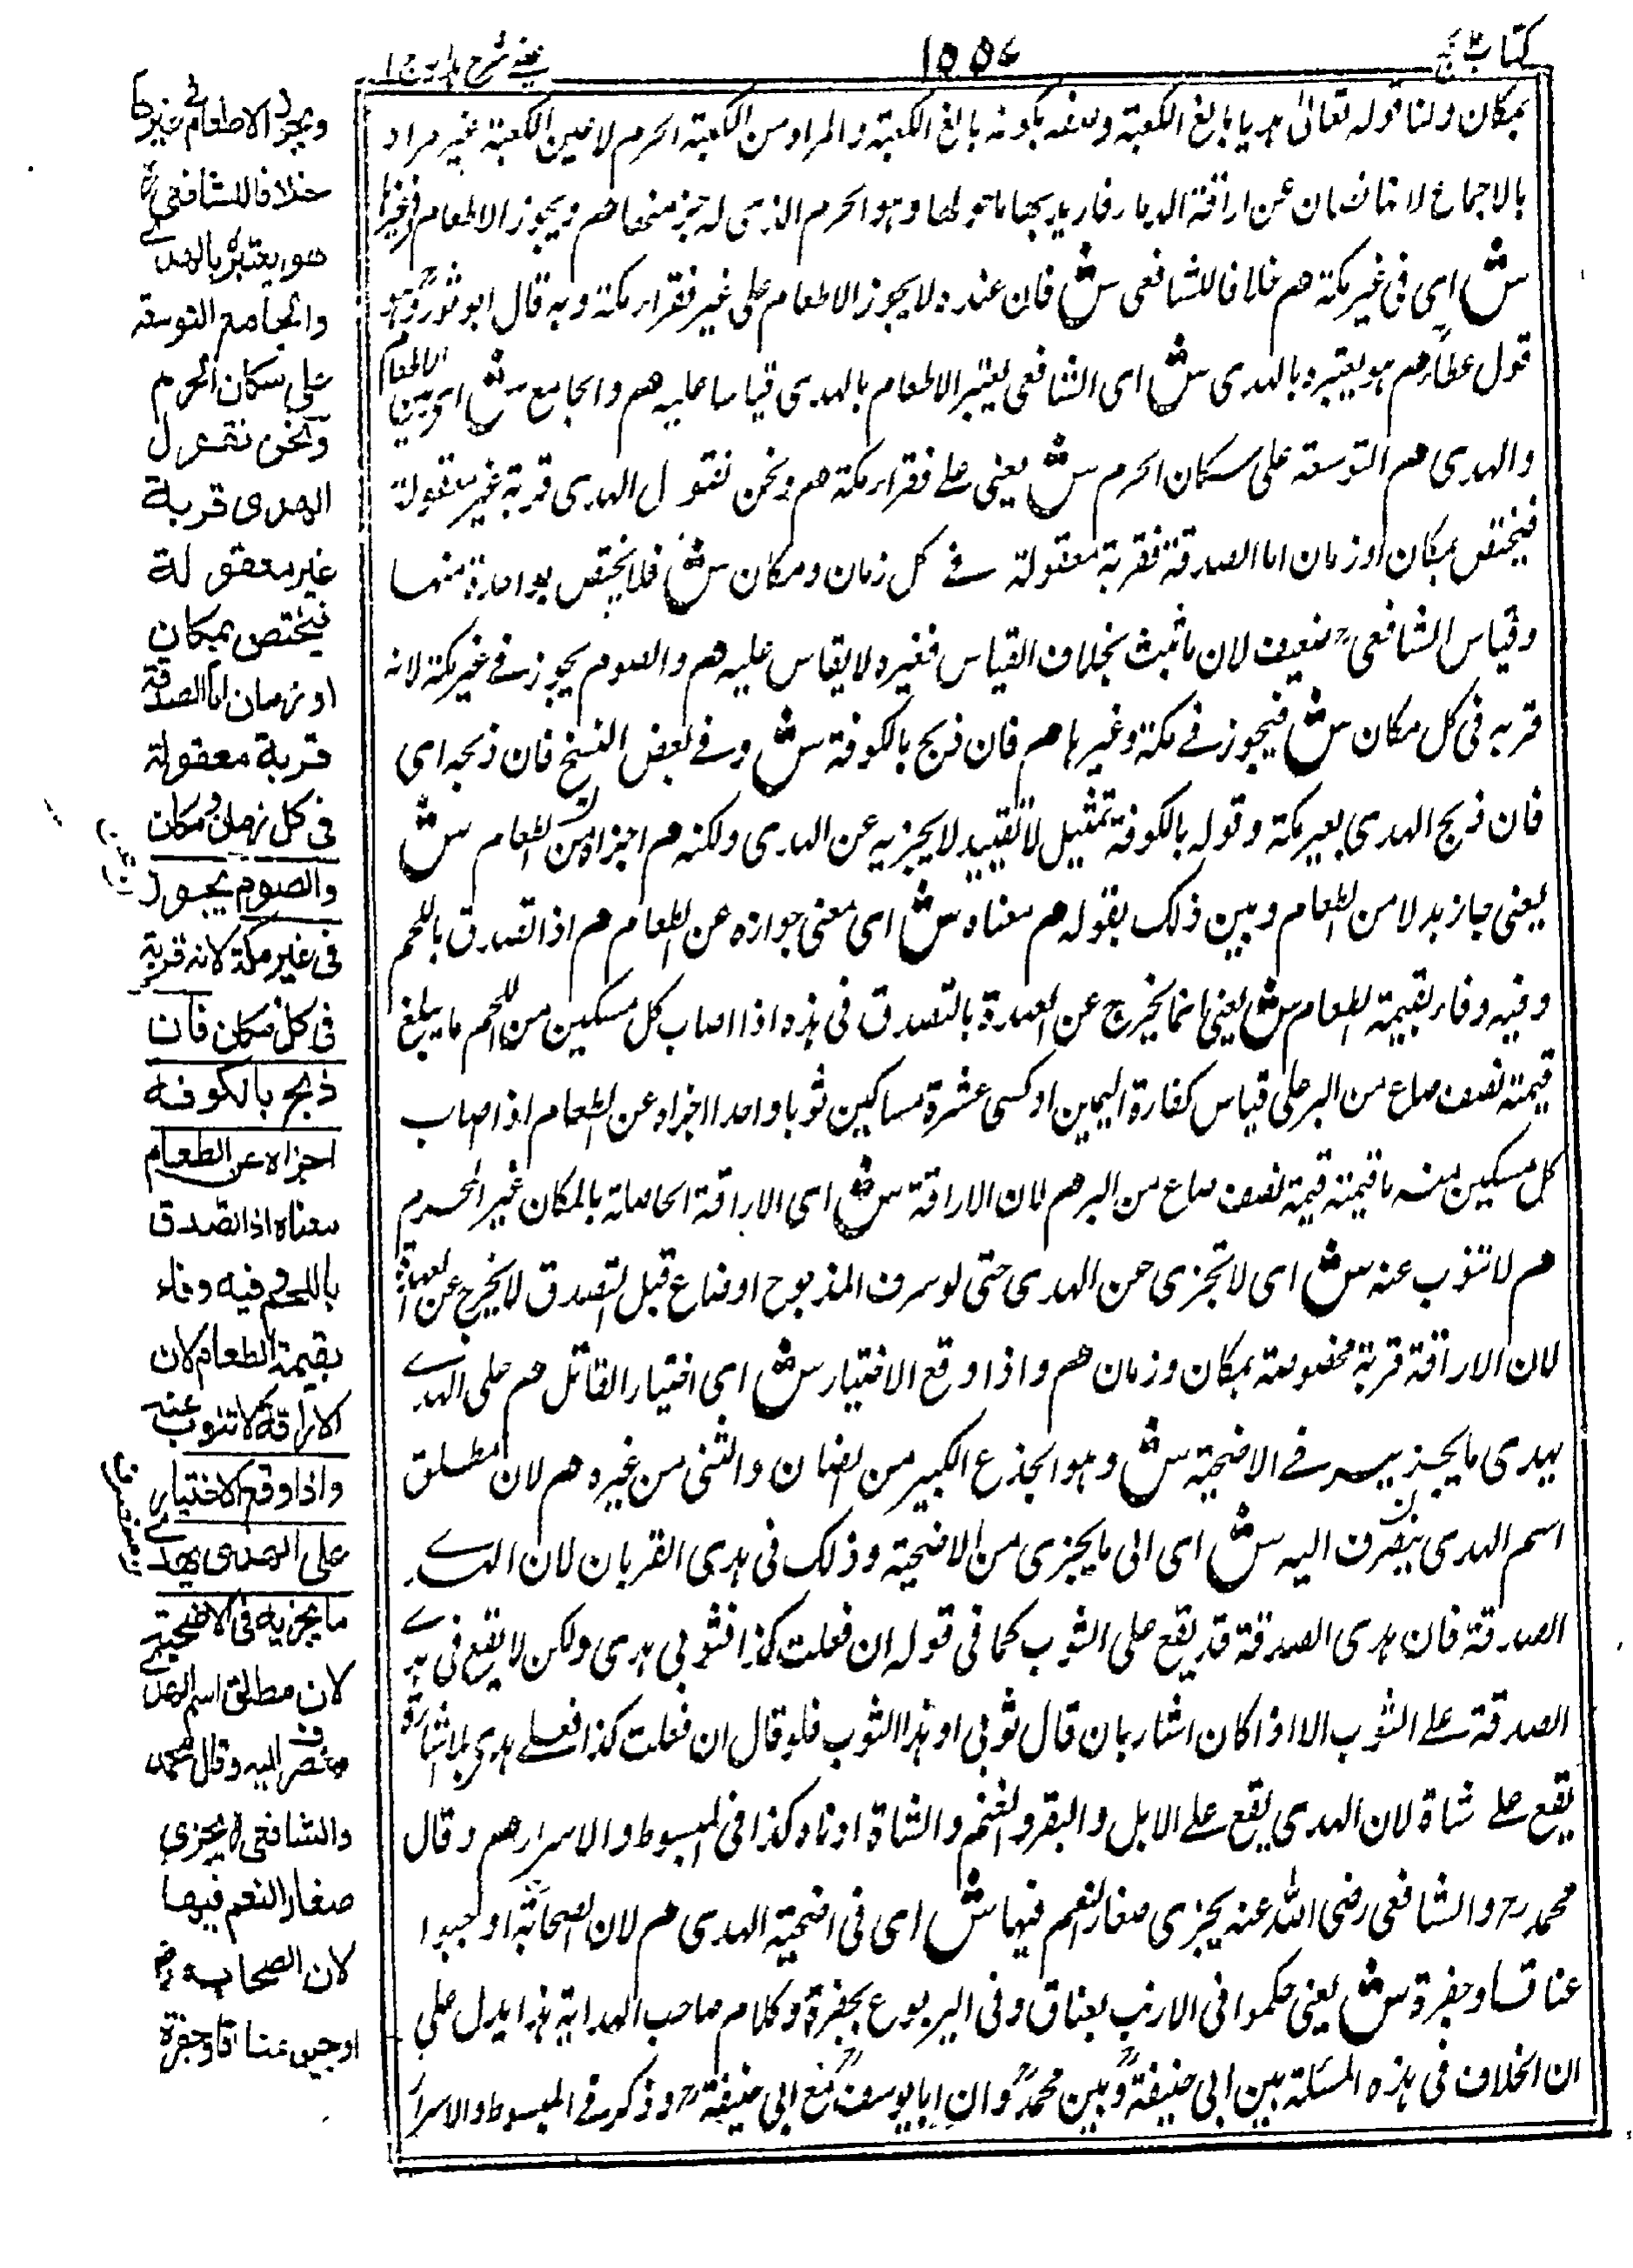 كتاب الحج
١٥٥٧
عيني شرح هداية ج ١
بمكان ولنا قوله تعالى هديا بالغ الكعبة وصفه بكونه بالغ الكعبة والمراد من الكعبة الحرم لا عين الكعبة غير مراد
بالاجماع لانها تصان عن اراقة الدماء فاريد بها ما حولها وهو الحرم الذى له جزء منها هم ويجوز الاطعام فى غيرها
ش اى فى غير مكة هم خلافا للشافعى ش فان عنده لا يجوز الاطعام على غير فقراء مكة وبه قال ابو ثورؒ وهو
قول عطاء هم هو يعتبره بالهدى ش اى الشافعى يعتبر الاطعام بالهدى قياسا عليه هم والجامع ش اى بين الاطعام
والهدى هم التوسعة على سكان الحرم ش يعنى على فقراء مكة هم ونحن نقول الهدى قربة غير معقولة
فيختص بمكان او زمان اما الصدقة فقربة معقولة فى كل زمان ومكان ش فلا يختص بواحدة منهما
وقياس الشافعىؒ ضعيف لان ما ثبت بخلاف القياس فغيره لا يقاس عليه هم والصوم يجوز فى غير مكة لانه
قربة فى كل مكان ش فيجوز فى مكة وغيرها هم فان ذبح بالكوفة ش وفى بعض النسخ فان ذبحه اى
فان ذبح الهدى بغير مكة وقوله بالكوفة تمثيل لا تقييد لا يجزيه عن الهدى ولكنه هم اجزاه من الطعام ش
يعنى جاز بدلا من الطعام وبين ذلك بقوله هم معناه ش اى معنى جوازه عن الطعام هم اذا تصدق باللحم
وفيه وفاء بقيمة الطعام ش يعنى انما يخرج عن العهدة بالتصدق فى هذه اذا اصاب كل مسكين من اللحم ما يبلغ
قيمته نصف صاع من البر على قياس كفارة اليمين او كسى عشرة مساكين ثوبا واحدا اجزاه عن الطعام اذا اصاب
كل مسكين منه ما قيمته قيمة نصف صاع من البر هم لان الاراقة ش اى الاراقة الحاصلة بالمكان غير الحرم
هم لا تنوب عنه ش اى لا تجزى عن الهدى حتى لو سرق المذبوح او ضاع قبل التصدق لا يخرج عن العهدة
لان الاراقة قربة مخصوصة بمكان وزمان هم واذا وقع الاختيار ش اى اختيار القاتل هم على الهدى
يهدى ما يجزيه فى الاضحية ش وهو الجذع الكبير من الضان والثنى من غيره هم لان مطلق
اسم الهدى ينصرف اليه ش اى الى ما يجزى من الاضحية وذلك فى هدى القربان لان الهدى
الصدقة فان هدى الصدقة قد يقع على الثوب كما فى قوله ان فعلت كذا فثوبى هدى ولكن لا يقع فى هدى
الصدقة على الثوب الا اذا كان اشار بان قال ثوبى او هذا الثوب فلو قال ان فعلت كذا فعلى هدى بلا اشارة
يقع على شاة لان الهدى يقع على الابل والبقر والغنم والشاة ادناه كذا فى المبسوط والاسرار هم وقال
محمدؒ والشافعى رضى الله عنه يجزى صغار النعم فيها ش اى فى اضحية الهدى هم لان الصحابة اوجبوا
عناقا وجفرة ش يعنى حكموا فى الارنب بعناق وفى اليربوع بجفرة وكلام صاحب الهداية هذا يدل على
ان الخلاف فى هذه المسئلة بين ابى حنيفةؒ وبين محمدؒ وان ابا يوسفؒ مع ابى حنيفةؒ وذكر فى المبسوط والاسرار
ويجوز الاطعام فى غيرها
خلافا للشافعىؒ
هو يعتبره بالهدى
والجامع التوسعة
على سكان الحرم
ونحن نقول
الهدى قربة
غير معقولة
فيختص بمكان
او زمان اما الصدقة
قربة معقولة
فى كل زمان ومكان
والصوم يجوز
فى غير مكة لانه قربة
فى كل مكان فان
ذبح بالكوفه
اجزاه عن الطعام
معناه اذا تصدق
باللحم وفيه وفاء
بقيمة الطعام لان
الاراقة لا تنوب عنه
واذا وقع الاختيار
على الهدى يهدى
ما يجزيه فى الاضحية
لان مطلق اسم الهدى
منصرف اليه وقال محمد
والشافعى يجزى
صغار النعم فيها
لان الصحابه رض
اوجبوا عناقا وجفرة